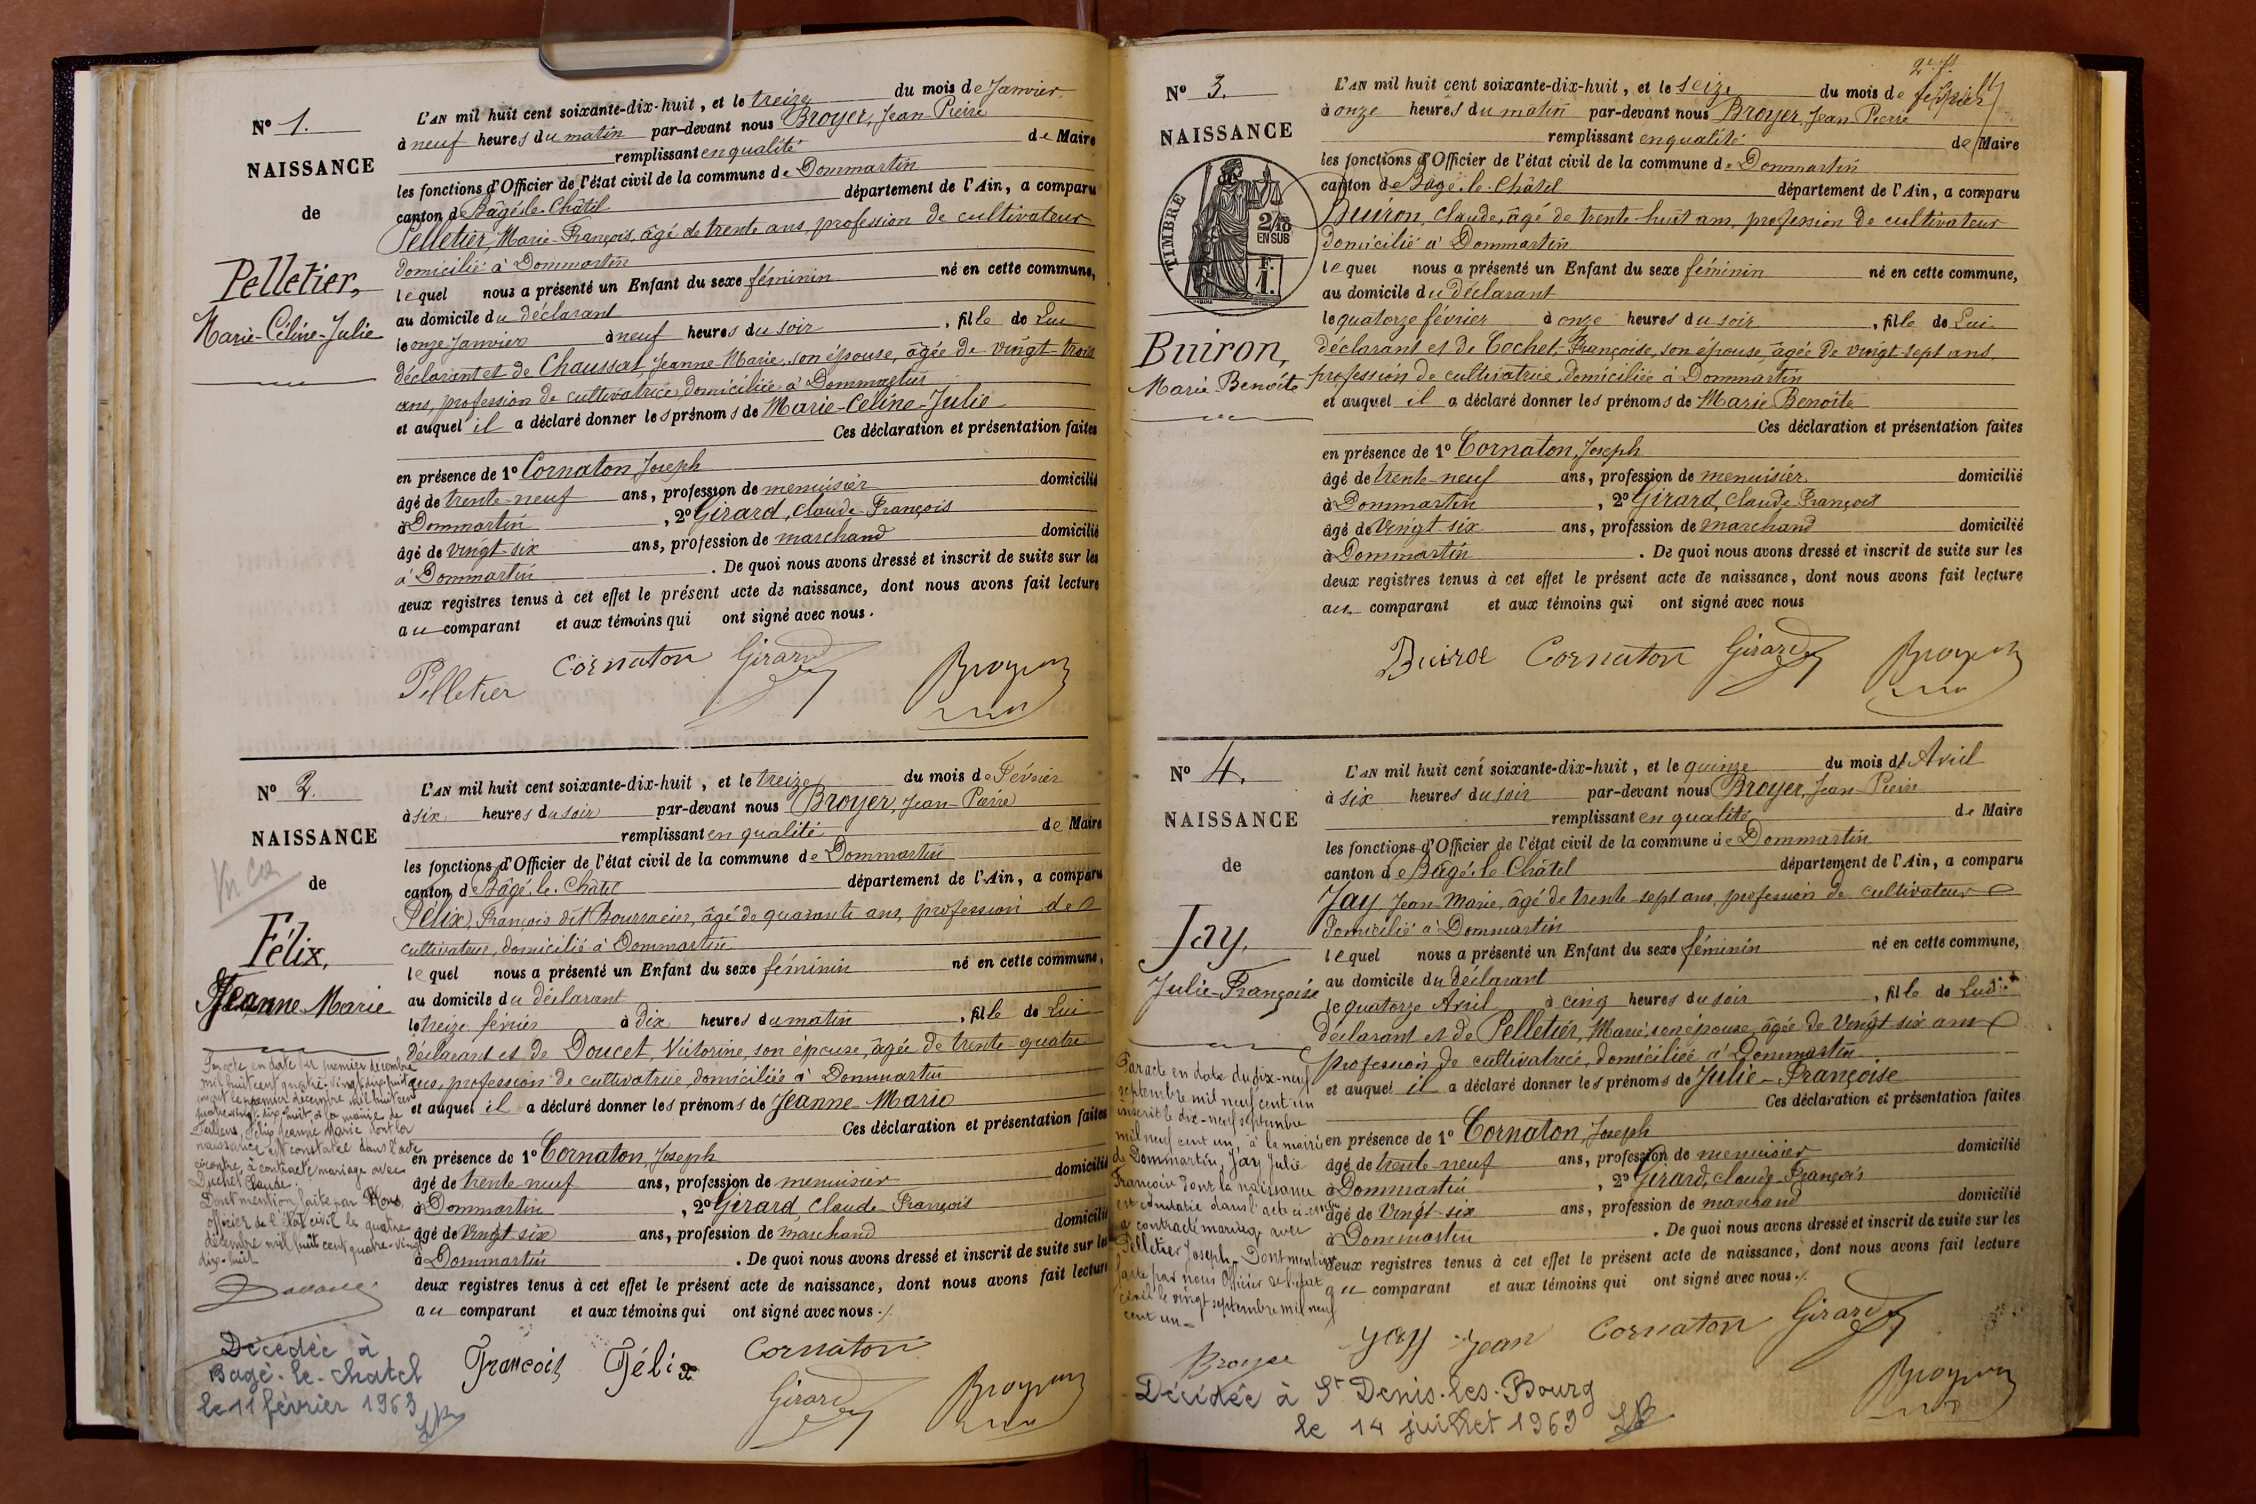 N° 1.
NAISSANCE
de
Pelletier,
Marie-Céline-Julie
L'AN mil huit cent soixante-dix-huit, et le treize du mois de Janvier
à neuf heures du matin par-devant nous Broyer, Jean Pierre
remplissant en qualité de Maire
les fonctions d'Officier de l'état civil de la commune de Dommartin
canton de Bâgé-le-Châtel département de l'Ain, a comparu
Pelletier, Marie-François, âgé de trente ans, profession de cultivateur
domicilié à Dommartin
lequel nous a présenté un Enfant du sexe féminin né en cette commune,
au domicile du déclarant
le onze Janvier à neuf heures du soir, fille de Lui
déclarant et de Chaussat, Jeanne Marie, son épouse, âgée de vingt-trois
ans, profession de cultivatrice, domiciliée à Dommartin
et auquel il a déclaré donner les prénoms de Marie-Celine-Julie
Ces déclaration et présentation faites
en présence de 1° Cornaton, Joseph
âgé de trente-neuf ans, profession de menuisier domicilié
à Dommartin, 2° Girard, Claude-François
âgé de vingt-six ans, profession de marchand domicilié
à Dommartin. De quoi nous avons dressé et inscrit de suite sur les
deux registres tenus à cet effet le présent acte de naissance, dont nous avons fait lecture
au comparant et aux témoins qui ont signé avec nous.
Pelletier Cornaton Girard Broyer
N° 2.
NAISSANCE
de
Félix,
Jeanne Marie
L'AN mil huit cent soixante-dix-huit, et le treize du mois de Février
à six heures du soir par-devant nous Broyer, Jean-Pierre
remplissant en qualité de Maire
les fonctions d'Officier de l'état civil de la commune de Dommartin
canton de Bâgé-le-Châtel département de l'Ain, a comparu
Félix, François dit Bourracier, âgé de quarante ans, profession de
cultivateur, domicilié à Dommartin
lequel nous a présenté un Enfant du sexe féminin né en cette commune,
au domicile du déclarant
le treize février à dix heures du matin, fille de Lui
déclarant et de Doucet, Victorine, son épouse, âgée de trente-quatre
ans, profession de cultivatrice, domiciliée à Dommartin
et auquel il a déclaré donner les prénoms de Jeanne-Marie
Ces déclaration et présentation faites
en présence de 1° Cornaton, Joseph
âgé de trente-neuf ans, profession de menuisier domicilié
à Dommartin, 2° Girard, Claude François
âgé de vingt six ans, profession de marchand domicilié
à Dommartin. De quoi nous avons dressé et inscrit de suite sur les
deux registres tenus à cet effet le présent acte de naissance, dont nous avons fait lecture
au comparant et aux témoins qui ont signé avec nous ./.
François Félix Cornaton
Girard Broyer
Par acte en date du premier décembre
mil huit cent quatre-vingt-dix-huit
inscrit le premier décembre mil huit cent
quatre-vingt-dix-huit à la mairie de
Félix Jeanne Marie dont la
naissance est constatée dans l'acte
ci-contre, a contracté mariage avec
Duchet Claude.
Dont mention faite par Nous,
officier de l'état civil le quatre
décembre mil huit cent quatre-vingt
dix-huit
Décédée à
Bagé-le-Chatel
le 11 février 1963
N° 3.
NAISSANCE
TIMBRE
2/10
EN SUS
F.
1.
Buiron,
Marie Benoîte
L'AN mil huit cent soixante-dix-huit, et le seize du mois de février
à onze heures du matin par-devant nous Broyer, Jean-Pierre
remplissant en qualité de Maire
les fonctions d'Officier de l'état civil de la commune de Dommartin
canton de Bâgé-le-Châtel département de l'Ain, a comparu
Buiron, Claude, âgé de trente-huit ans, profession de cultivateur
domicilié à Dommartin
lequel nous a présenté un Enfant du sexe féminin né en cette commune,
au domicile du déclarant
le quatorze février à onze heures du soir, fille de Lui
déclarant et de Cochet, Françoise, son épouse, âgée de vingt-sept ans,
profession de cultivatrice, domiciliée à Dommartin
et auquel il a déclaré donner les prénoms de Marie Benoîte
Ces déclaration et présentation faites
en présence de 1° Cornaton, Joseph
âgé de trente-neuf ans, profession de menuisier domicilié
à Dommartin, 2° Girard, Claude François
âgé de vingt-six ans, profession de marchand domicilié
à Dommartin. De quoi nous avons dressé et inscrit de suite sur les
deux registres tenus à cet effet le présent acte de naissance, dont nous avons fait lecture
au comparant et aux témoins qui ont signé avec nous
Cornaton Girard Broyer
N° 4.
NAISSANCE
de
Jay,
Julie-Françoise
L'AN mil huit cent soixante-dix-huit, et le quinze du mois d'Avril
à six heures du soir par-devant nous Broyer, Jean-Pierre
remplissant en qualité de Maire
les fonctions d'Officier de l'état civil de la commune de Dommartin
canton de Bâgé-le-Châtel département de l'Ain, a comparu
Jay, Jean-Marie, âgé de trente-sept ans, profession de cultivateur
domicilié à Dommartin
lequel nous a présenté un Enfant du sexe féminin né en cette commune,
au domicile du déclarant
le quatorze Avril à cinq heures du soir, fille de Lui
déclarant et de Pelletier, Marie, son épouse, âgée de vingt six ans
profession de cultivatrice, domiciliée à Dommartin
et auquel il a déclaré donner les prénoms de Julie-Françoise
Ces déclaration et présentation faites
en présence de 1° Cornaton, Joseph
âgé de trente-neuf ans, profession de menuisier domicilié
à Dommartin, 2° Girard, Claude-François
âgé de vingt-six ans, profession de marchand domicilié
à Dommartin. De quoi nous avons dressé et inscrit de suite sur les
deux registres tenus à cet effet le présent acte de naissance, dont nous avons fait lecture
au comparant et aux témoins qui ont signé avec nous ./.
Jay Jean Cornaton Girard
Broyer
Par acte en date du dix-neuf
septembre mil neuf cent un
inscrit le dix-neuf septembre
mil neuf cent un, à la mairie
de Dommartin, Jay Julie
Françoise dont la naissance
est constatée dans l'acte ci-contre
a contracté mariage avec
Pelletier Joseph. Dont mention
faite par nous Officier de l'état
civil le vingt septembre mil neuf
cent un.
Broyer
Décédée à St Denis-les-Bourg
le 14 juillet 1969